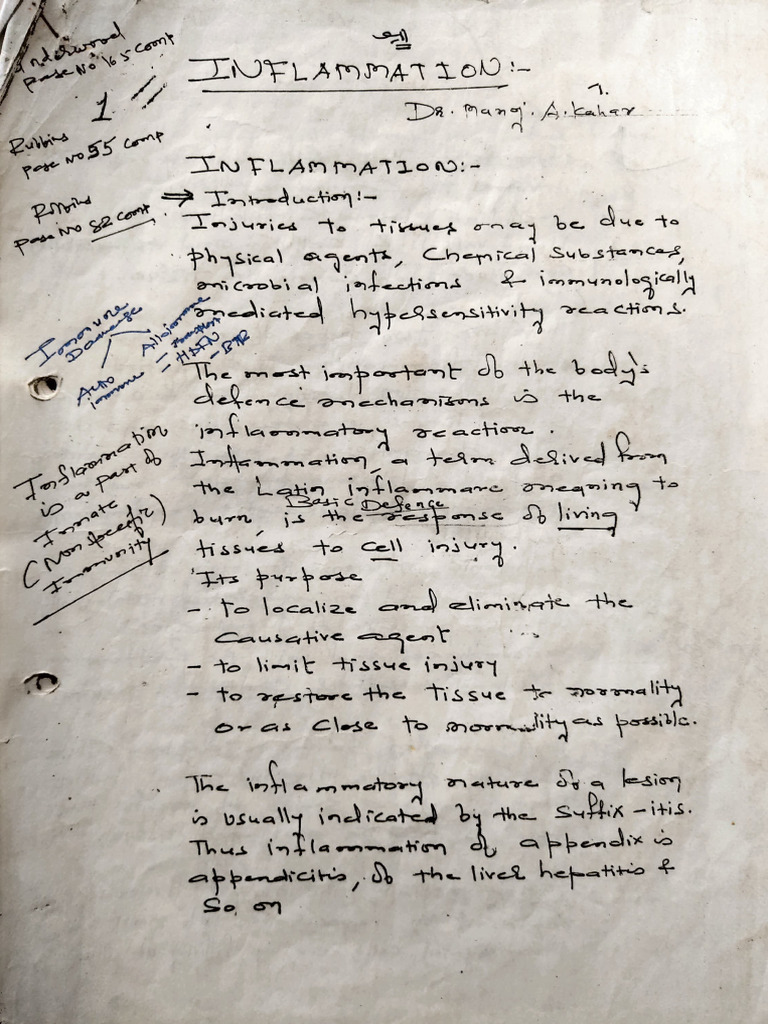 श्री
INFLAMMATION:-
Dr. Manoj. A. Kahar
Underwood
Page No 165 Comp
1
Rubbins
Page No 55 Comp
Robbins
Page No 82 Comp
INFLAMMATION:-
⇒ Introduction:-
Injuries to tissues may be due to
physical agents, Chemical Substances,
microbial infections & immunologically
mediated hypersensitivity reactions.
Immune
Damage
Auto
immune
Alloimmune
- HDFN
- BTR
The most important of the body's
defence mechanisms is the
inflammatory reaction.
Inflammation, a term derived from
the Latin inflammare meaning to
Basic Defence
burn, is the response of living
tissues to cell injury.
Inflammation
is a part of
Innate
(Nonspecific)
Immunity
Its purpose
- to localize and eliminate the
Causative agent
- to limit tissue injury
- to restore the tissue to normality
or as close to normality as possible.
The inflammatory nature of a lesion
is usually indicated by the Suffix -itis.
Thus inflammation of appendix is
appendicitis, of the liver hepatitis &
So, on